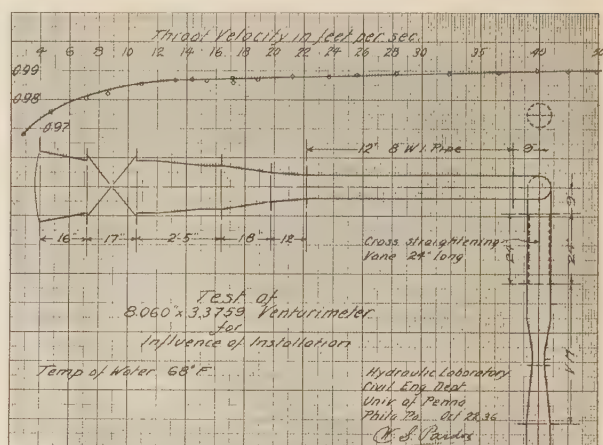 Throat Velocity in feet per sec.
4 6 8 10 12 14 16 18 20 22 24 26 28 30 35 40 50
0.99
0.98
0.97
12" 8" W.I. Pipe
9"
16" 17" 2'-5" 18" 12"
9"
24"
24"
V.M.
Cross straightening
Vane 24" long
Test of
8.060" x 3.3759 Venturimeter
for
Influence of Installation
Temp of Water 68°F
Hydraulic Laboratory
Civil Eng Dept.
Univ of Penna
Phila Pa. Oct 22 36
W. S. Pardoe